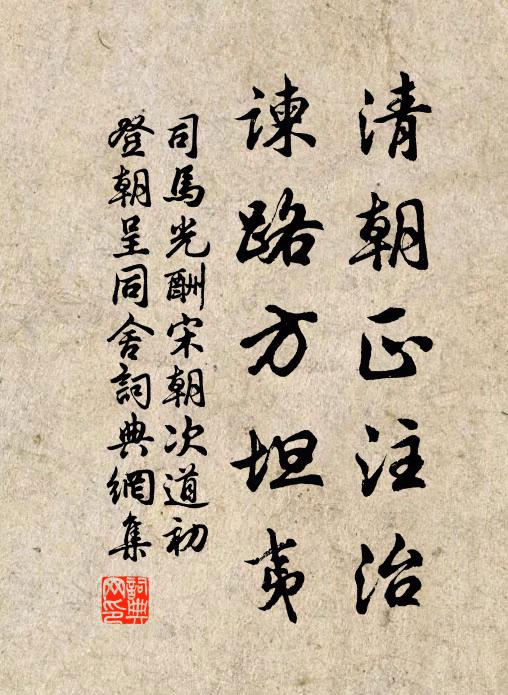 清朝正注治
諫路方坦夷
司馬光酬宋朝次道初
登朝呈同舍詞典網集
詞典網印